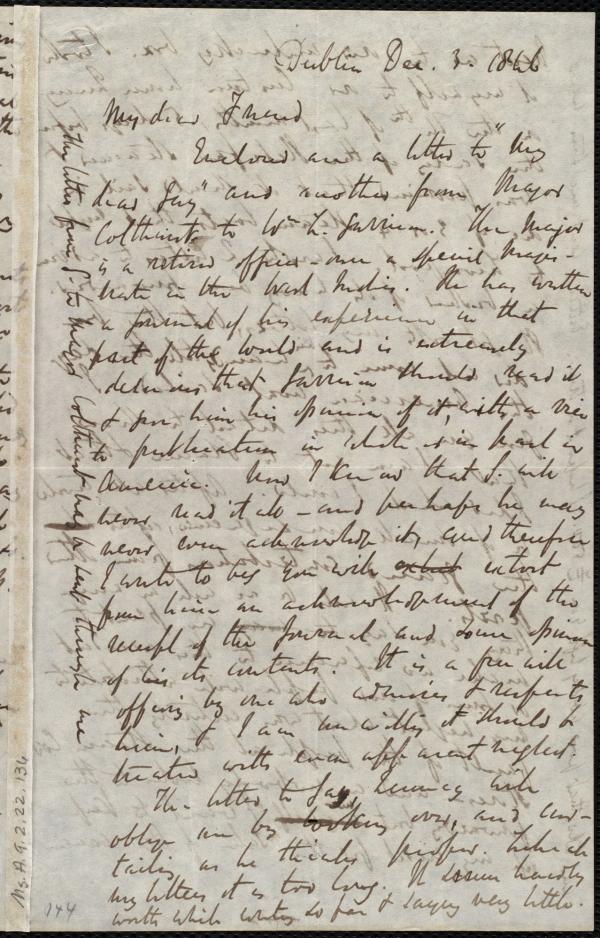 Dublin Dec. 3. 1846
My dear Friend
Enclosed are a letter to "My
dear Gay" and another from Major
Colthurst to Wm L. Garrison. The Major
is a retired officer - once a special Magis-
trate in the West Indies. He has written
a journal of his experience in that
part of the world and is extremely
desirous that Garrison should read it
& give him his opinion of it, with a view
to publication in whole or in part in
America. Now I know that G. will
never read it all - and perhaps he may
never even acknowledge it, and therefore
I write to beg you will extort
from him an acknowledgement of the
receipt of the Journal and some opinion
of its contents. It is a free will
offering by one who admires & respects
him, & I am unwilling it should be
treated with even apparent neglect.
The letter to Gay, Quincy will
oblige me by looking over, and cur-
tailing as he thinks proper. Like all
my letters it is too long. It seems hardly
worth while writing so far & saying very little.
The letter from G. to Major Colthurst may be sent through me
Ms. A. 9. 2. 22. 136
144